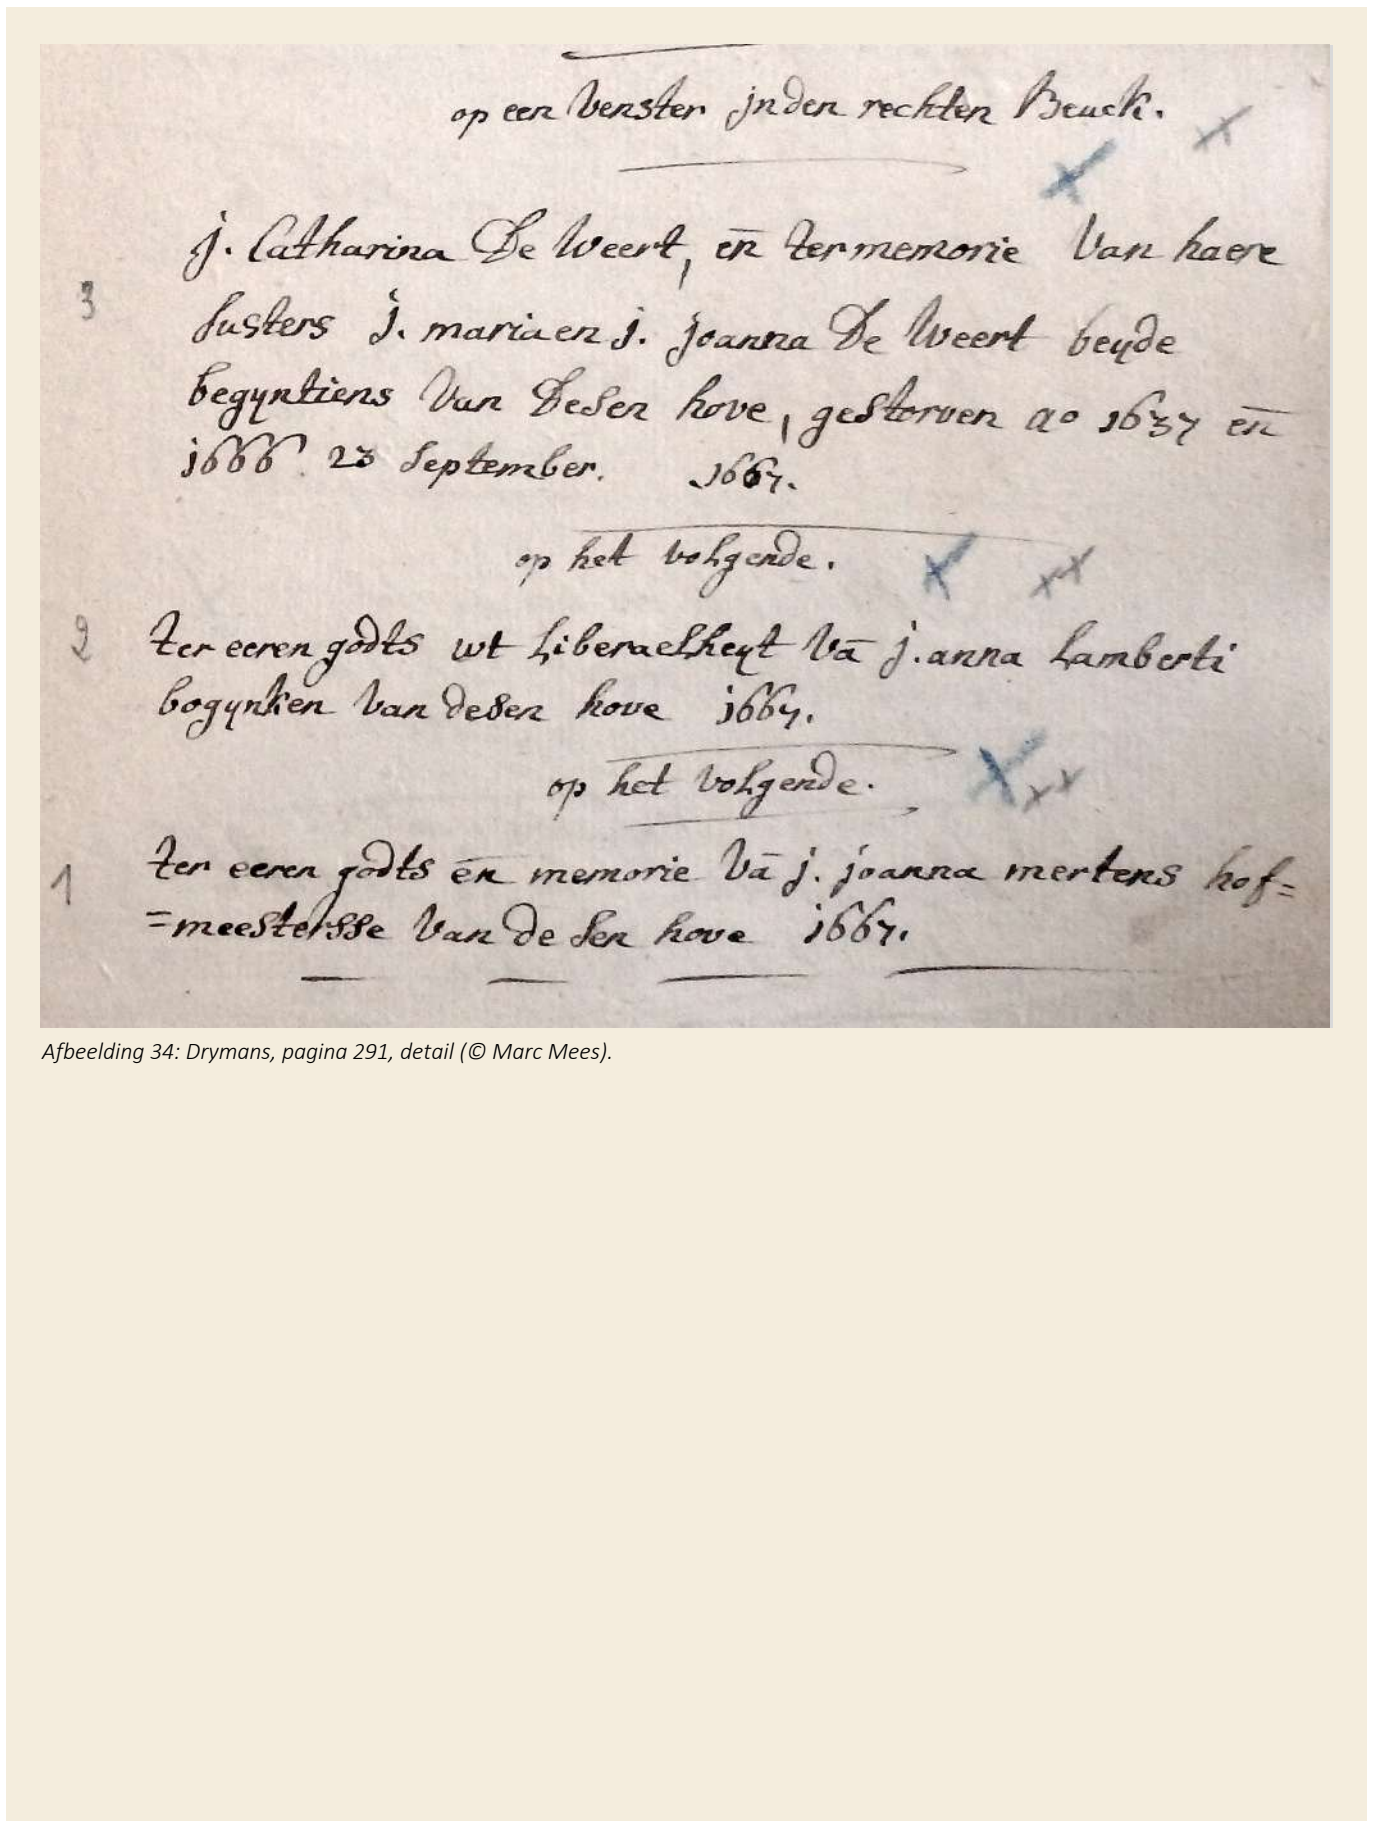 op een Venster jnden rechten Beuck.
j. Catharina De Weert, en̄ ter memorie Van haere
3
susters j. maria en j. joanna De Weert beyde
begyntiens Van Desen hove, gestorven ao 1637 en̄
1666 23 September. 1667.
op het volgende.
2
ter eeren godts wt Liberaelheyt Vā j. anna Lamberti
bogynken Van desen hove 1667.
op het volgende.
1
ter eeren godts en̄ memorie Vā j. joanna mertens hof=
=meestersse Van desen hove 1667.
Afbeelding 34: Drymans, pagina 291, detail (© Marc Mees).